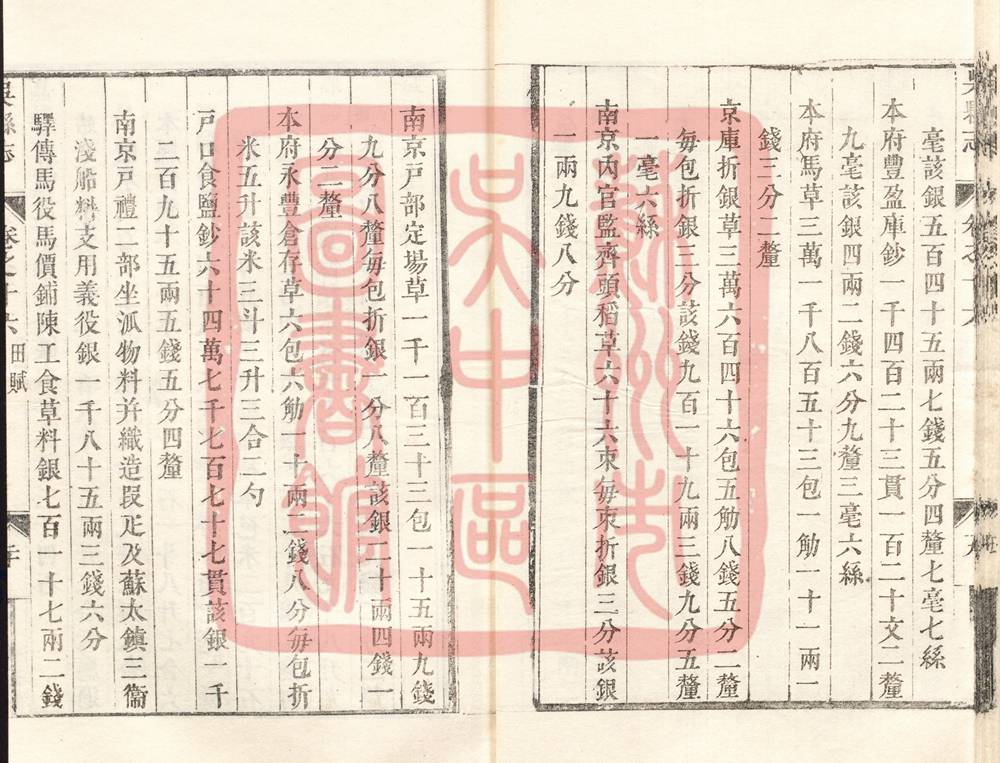 毫該銀五百四十五兩七錢五分四釐七毫七絲
本府豐盈庫鈔一千四百二十三貫一百二十文二釐
九毫該銀四兩二錢六分九釐三毫六絲
本府馬草三萬一千八百五十三包一觔一十一兩一
錢三分二釐
京庫折銀草三萬六百四十六包五觔八錢五分二釐
每包折銀三分該銀九百一十九兩三錢九分五釐
一毫六絲
南京內官監齊頭稻草六十六束每束折銀三分該銀
一兩九錢八分
南京戸部定場草一千一百三十三包一十五兩九錢
九分八釐每包折銀一分八釐該銀二十兩四錢一
分二釐
本府永豐倉存草六包六觔一十兩二錢八分每包折
米五升該米三斗三升三合二勺
戸口食鹽鈔六十四萬七千七百七十七貫該銀一千
二百九十五兩五錢五分四釐
南京戸禮二部坐派物料并織造叚疋及蘇太鎮三衞
淺船料支用義役銀一千八十五兩三錢六分
驛傳馬役馬價鋪陳工食草料銀七百一十七兩二錢
吳縣志
卷之十六 田賦
二十
蘇州市
吳中區
圖書館